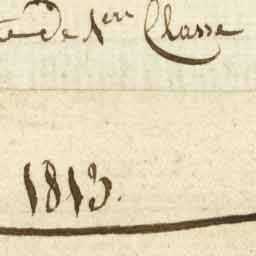 te de 1ere Classe
1813.